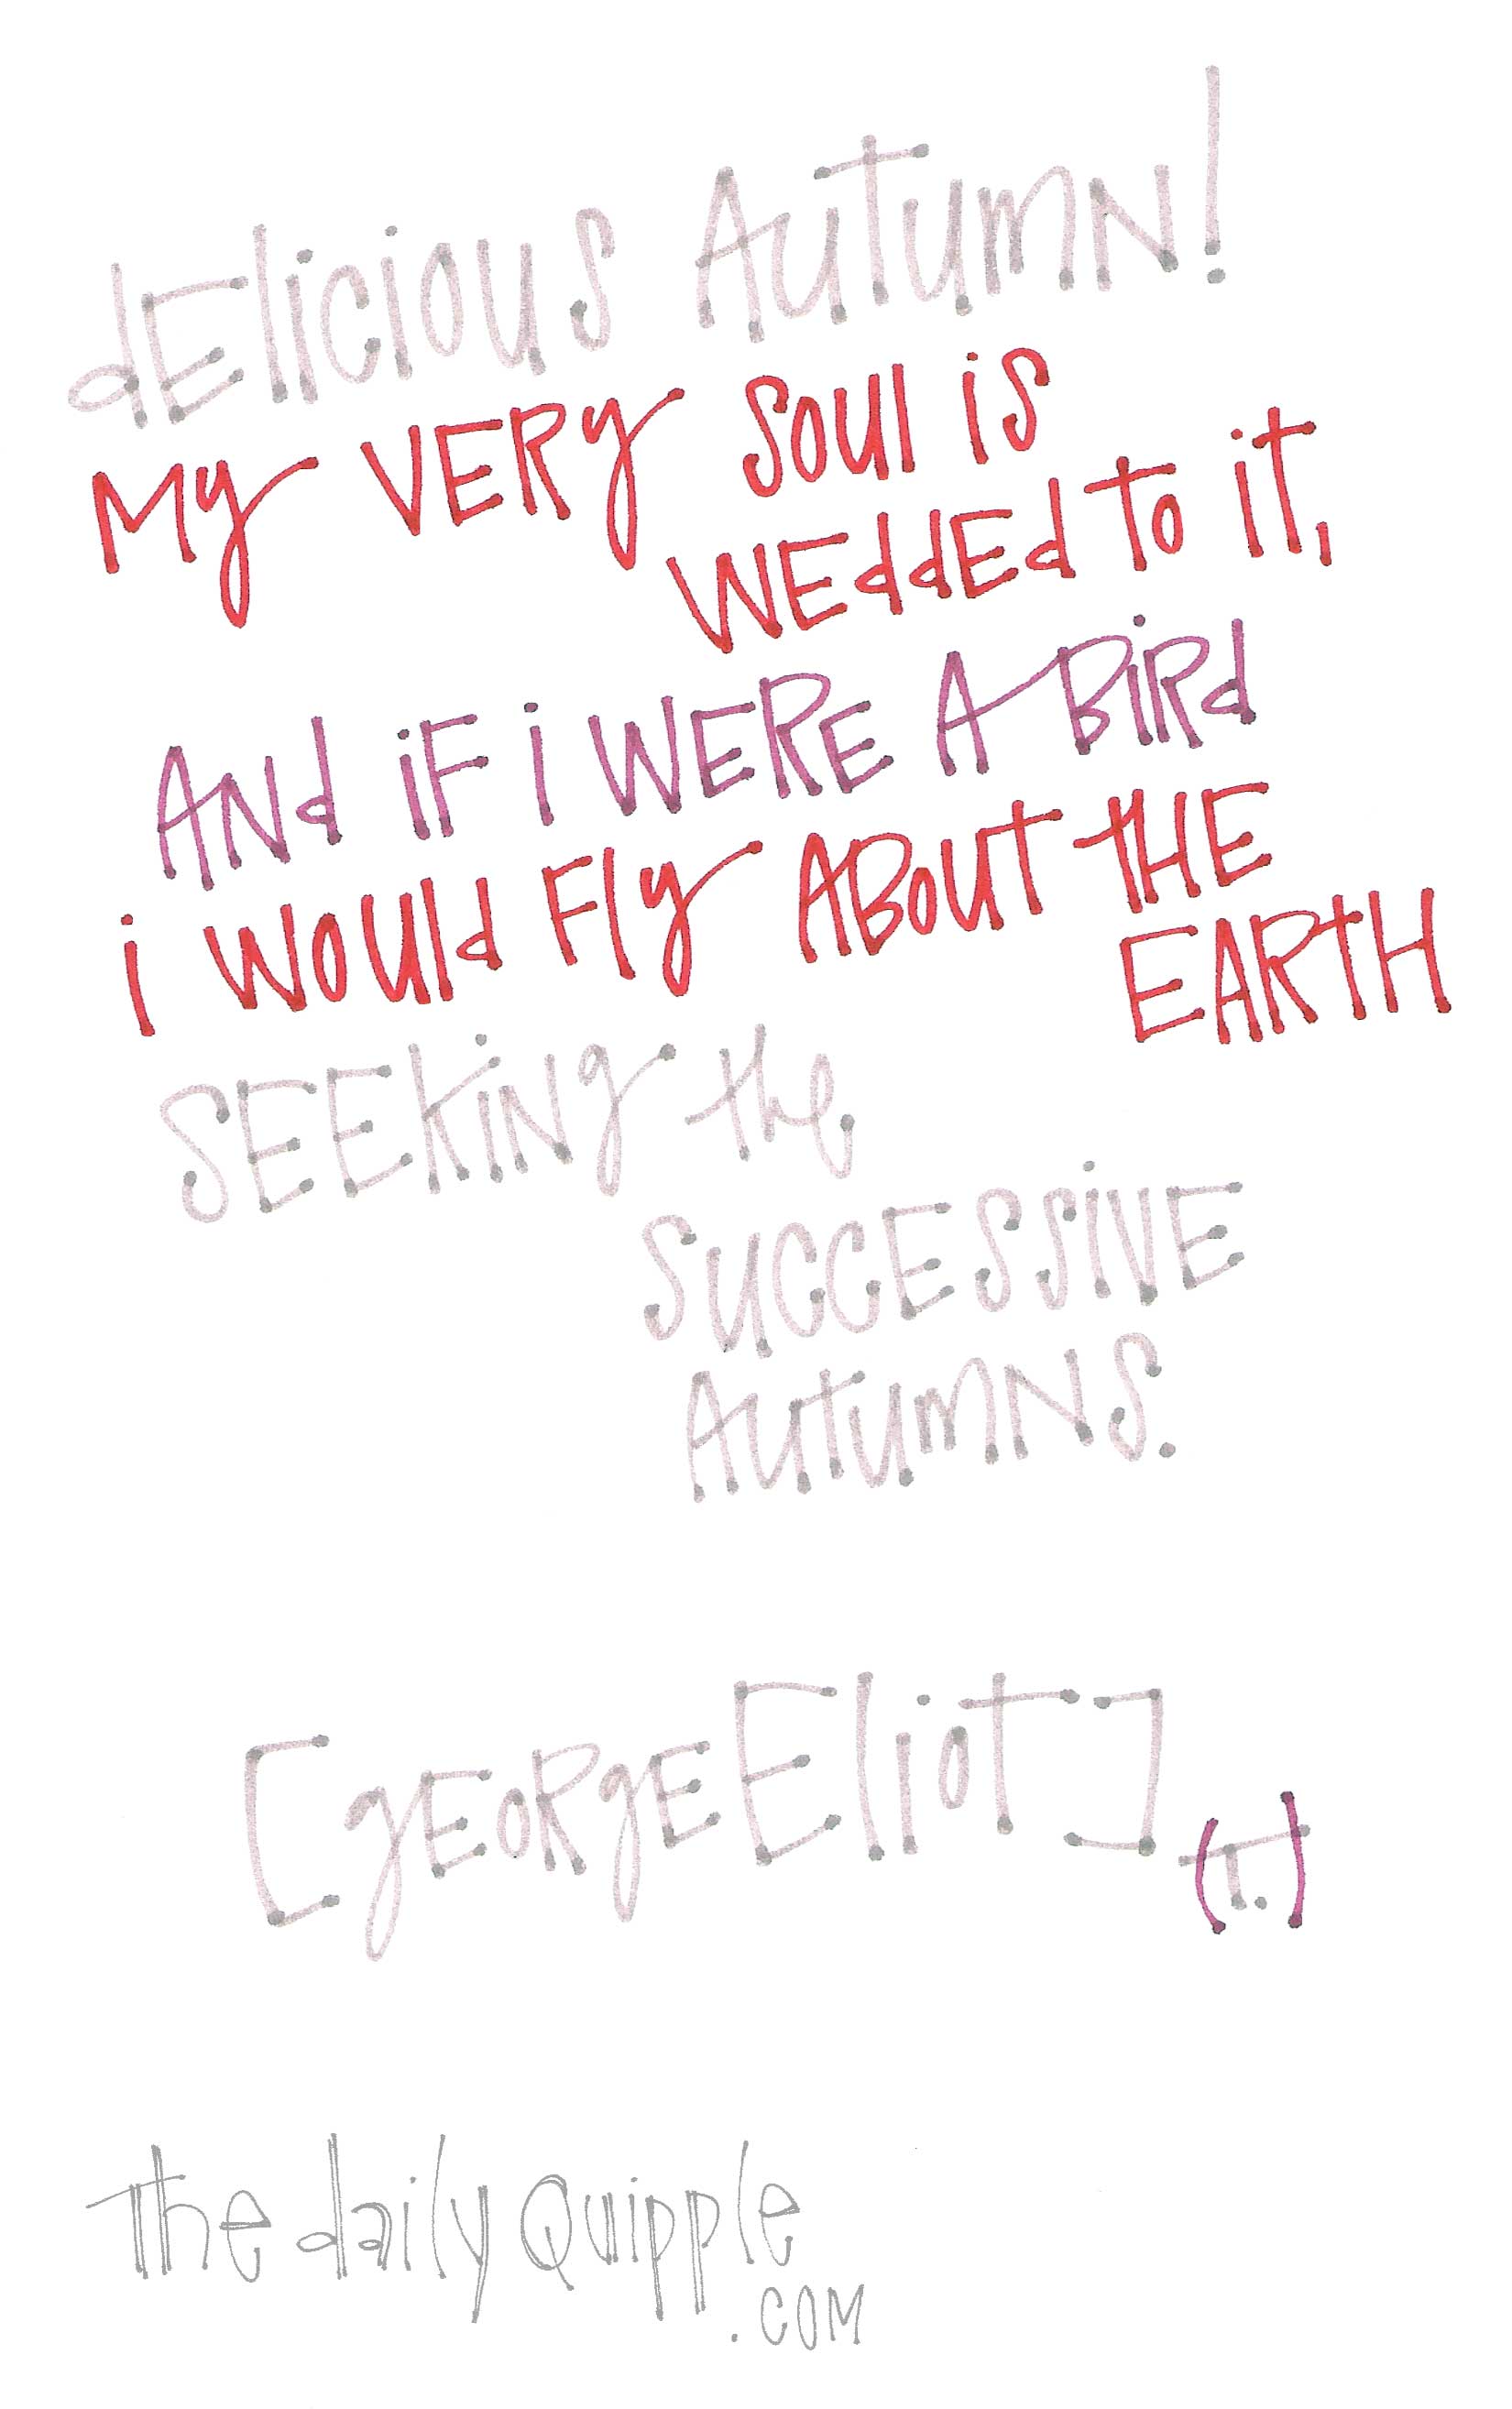 dElicious AutumN!
My VERy soul is
WEddEd to it,
ANd iF i WERE A BiRd
i Would Fly ABout tHE
EARtH
SEEKiNg the
SuccEssivE
AutumNs.
[gEoRgE Eliot] (T.)
the daily Quipple
.COM